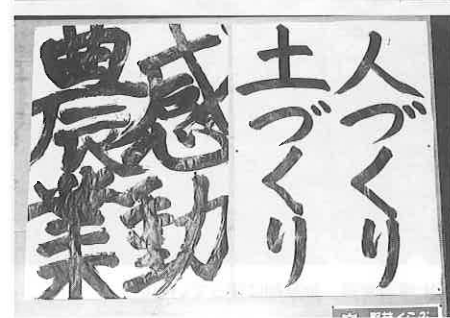 人づくり
土づくり
感動
農業